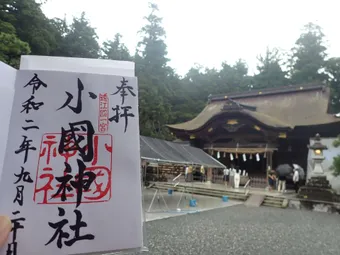 奉拝
遠江國一宮
小國神社
小國神社
令和二年九月二十